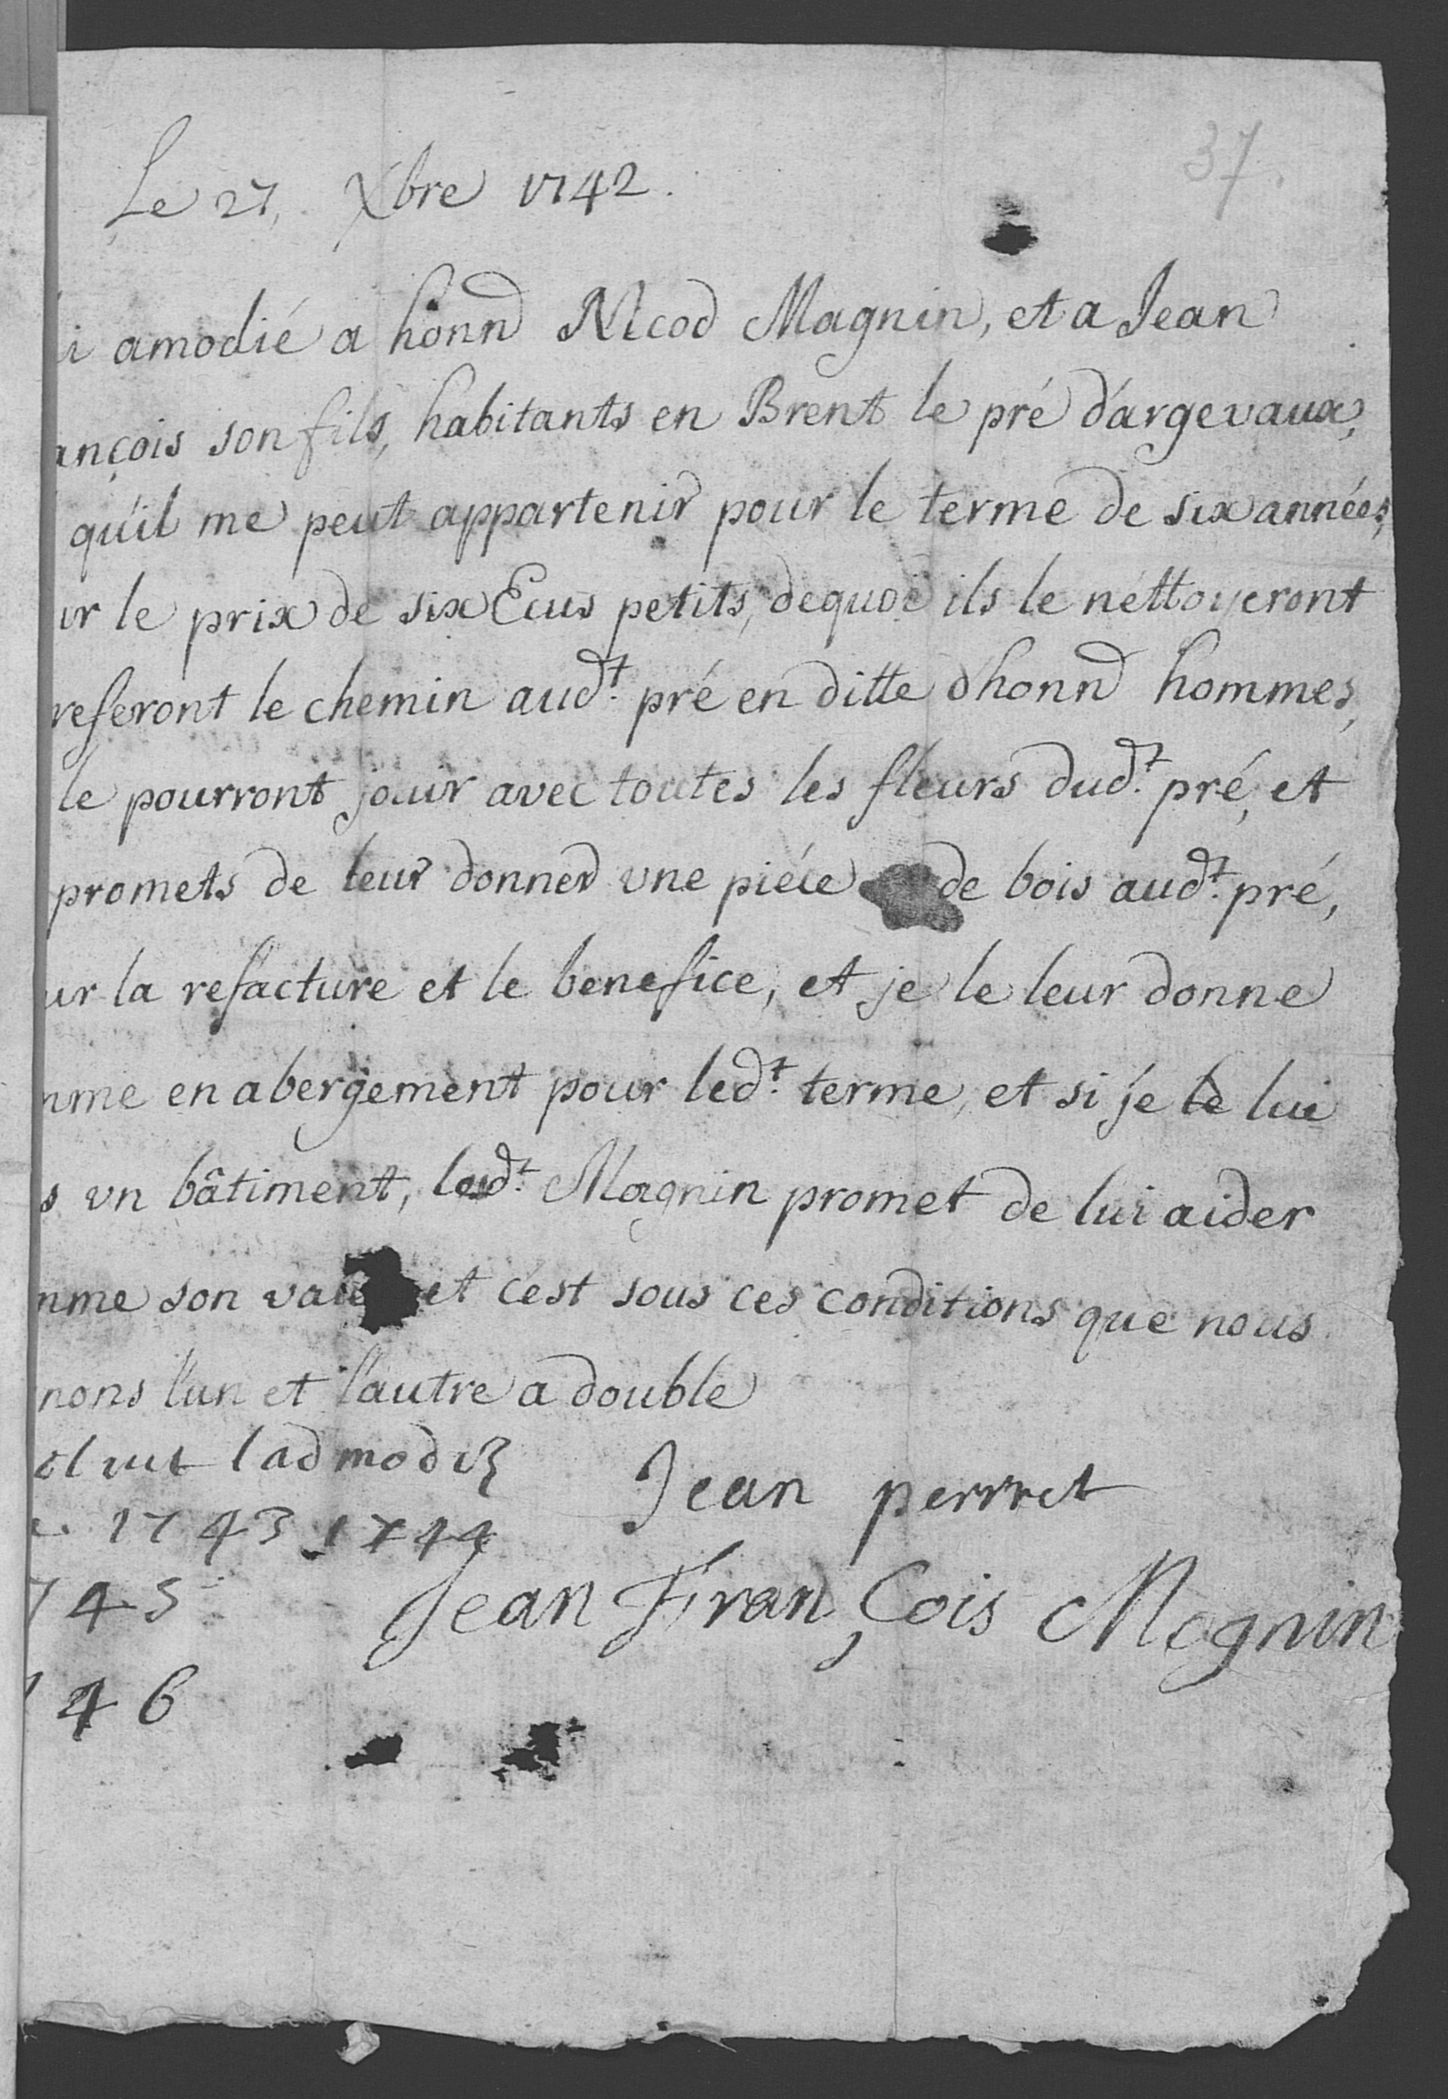 37.
Le 27, Xbre 1742.
i amodié a honnd Nicod Magnin, et a Jean
ançois son fils, habitants en Brent le pré d'argevaux,
qu'il me peut appartenir pour le terme de six années,
ur le prix de six Ecus petits, dequoi ils le néttoyeront
referont le chemin audt. pré en ditte d'honnd hommes,
le pourront jouir avec toutes les fleurs dudt. pré, et
promets de leur donner une piéce de bois audt. pré,
ur la refacture et le benefice, et je le leur donne
mme en abergement pour ledt. terme, et si je le lui
s un bâtiment, ledt. Magnin promet de lui aider
mme son et c'est sous ces conditions que nous
nons l'un et l'autre a double
ladmodié
1743 1744
Jean perrret
745
Jean FranÇois Magnin
46